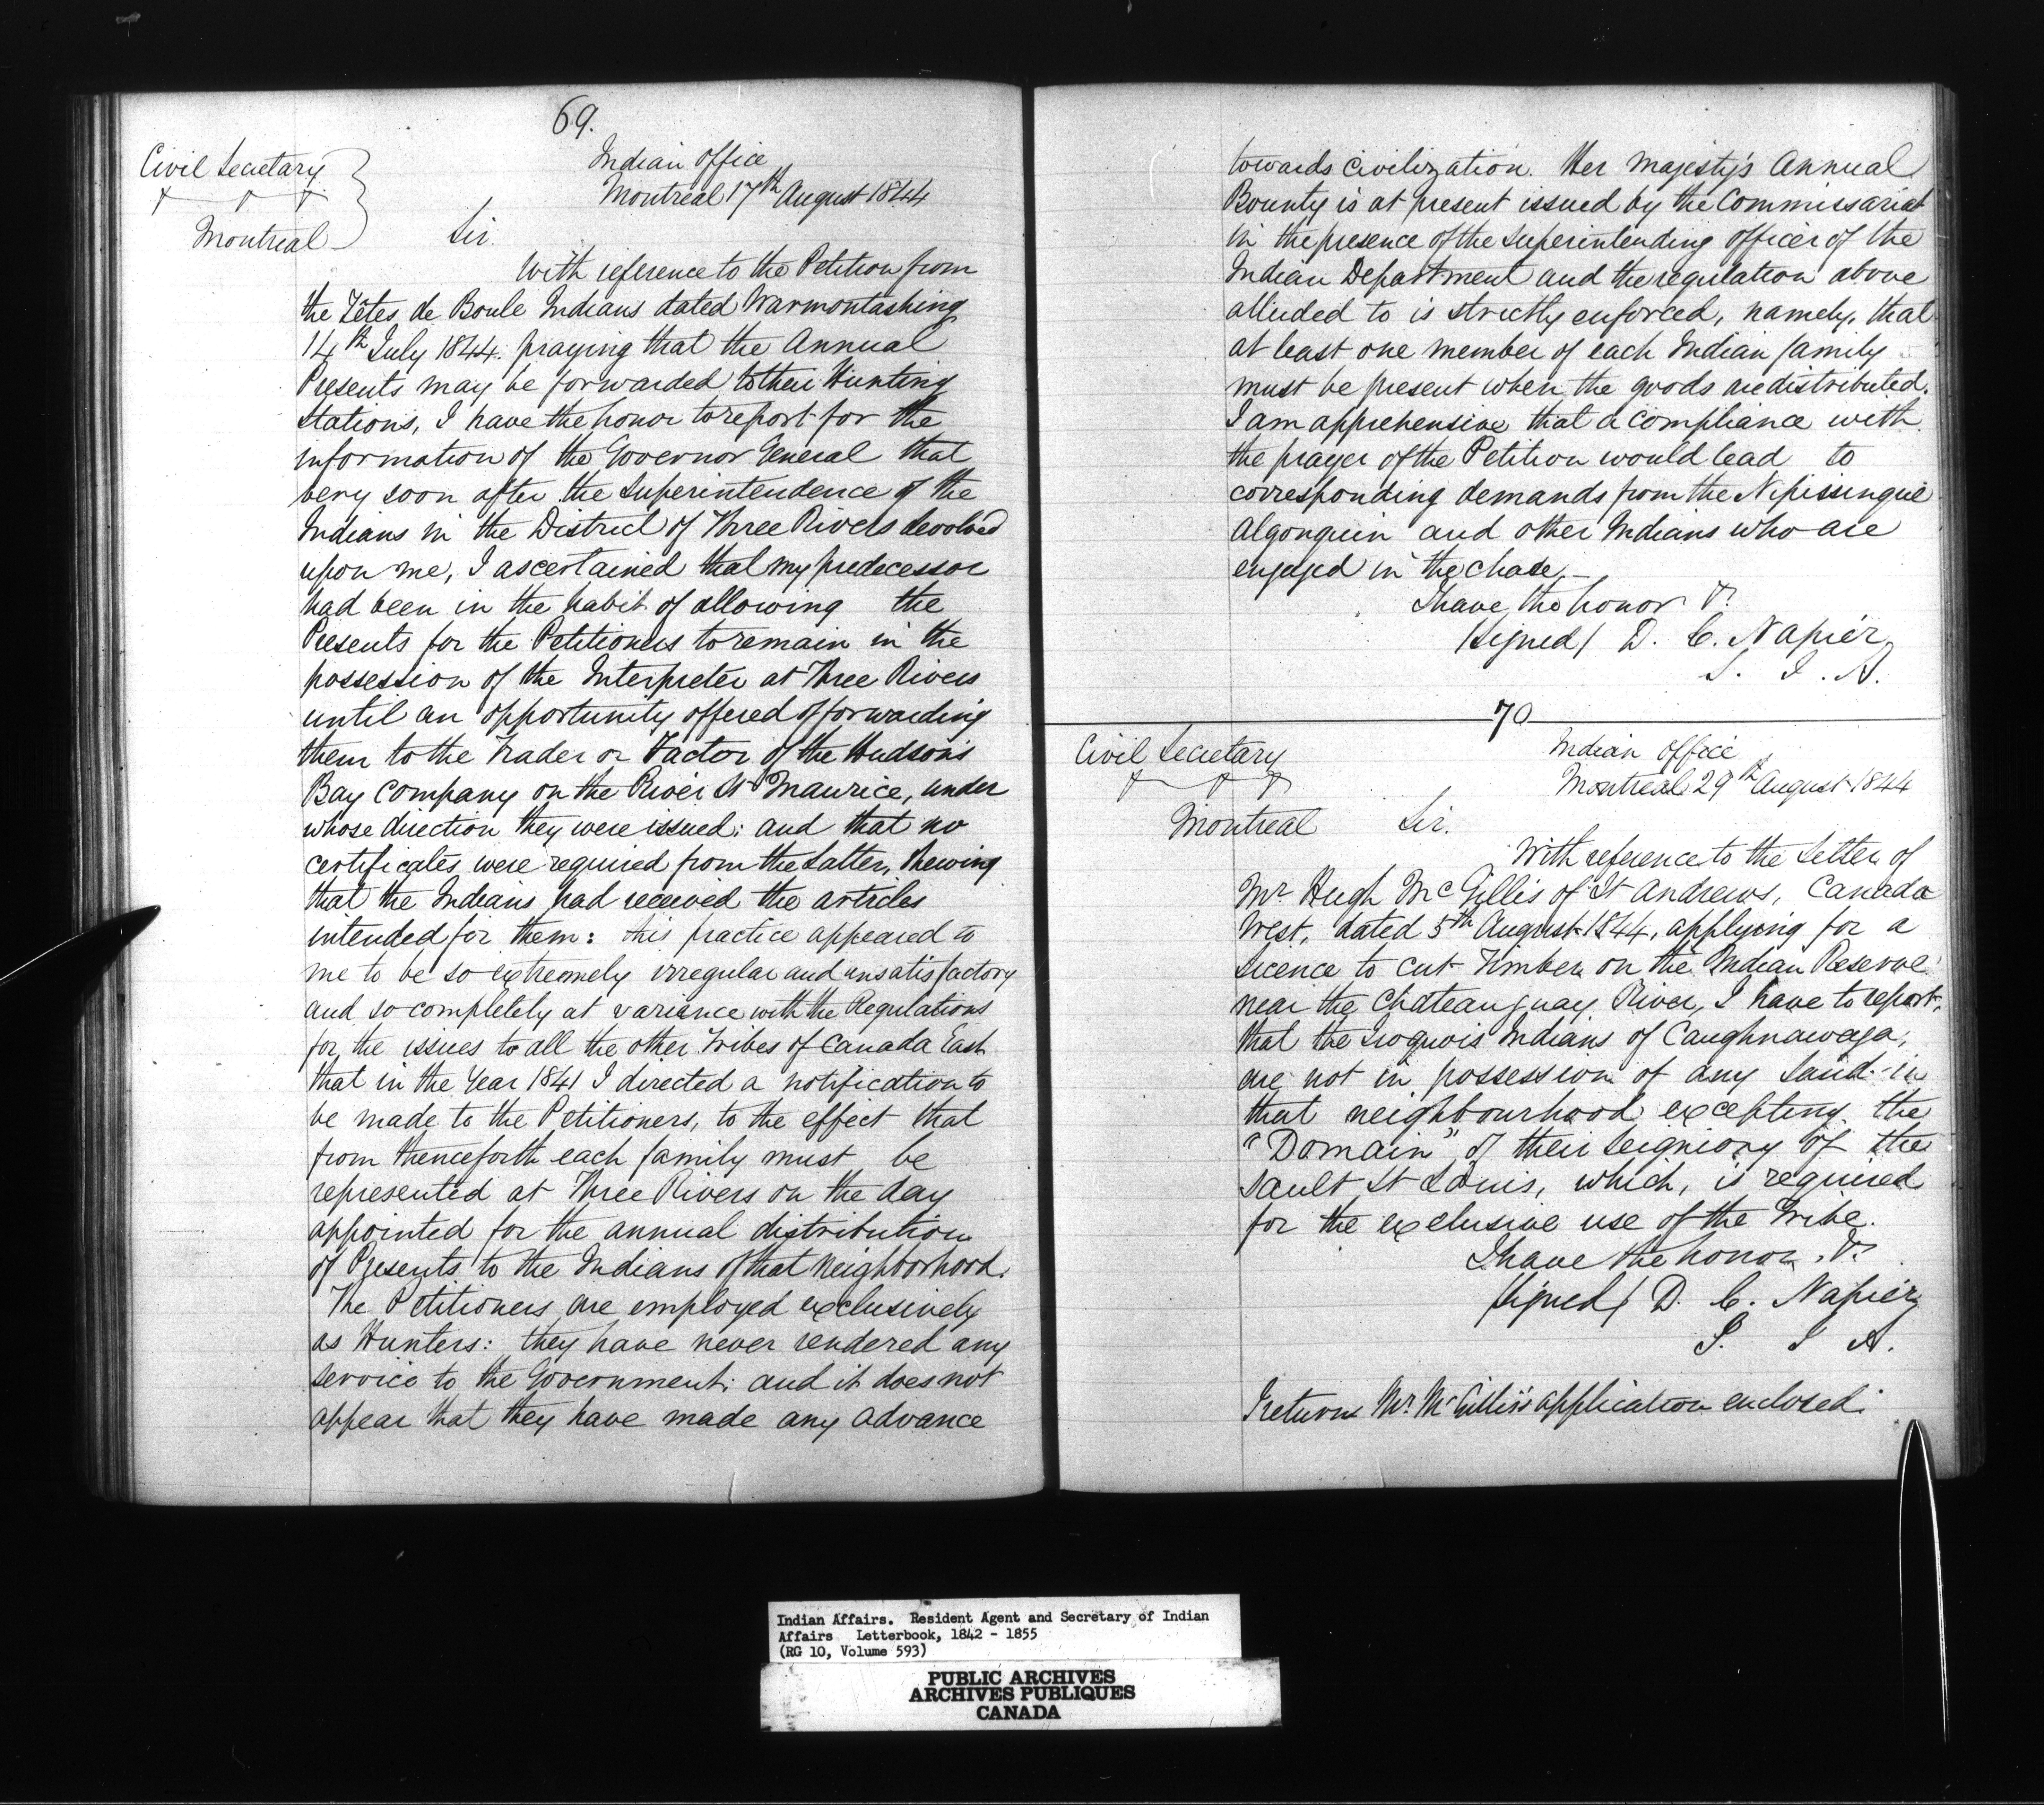 69.
Civil Secretary
Montreal
Indian Office
Montreal 17th August 1844
Sir.
With reference to the Petition from
the Têtes de Boule Indians dated Warmontashing
14th July 1844. praying that the Annual
Presents may be forwarded to their Hunting
Stations, I have the honor to report for the
information of the Governor General that
very soon after the Superintendence of the
Indians in the District of Three Rivers devolved
upon me, I ascertained that my predecessor
had been in the habit of allowing the
Presents for the Petitioners to remain in the
possession of the Interpreter at Three Rivers
until an opportunity offered of forwarding
them to the Trader or Factor of the Hudson's
Bay Company on the River St Maurice, under
whose direction they were issued: and that no
certificates were required from the latter, shewing
that the Indians had received the articles
intended for them: this practice appeared to
me to be so extremely irregular and unsatisfactory
and so completely at variance with the Regulations
for the issues to all the other Tribes of Canada East
that in the Year 1841 I directed a notification to
be made to the Petitioners, to the effect that
from thenceforth each family must be
represented at Three Rivers on the day
appointed for the annual distribution
of Presents to the Indians of that neighborhood.
The Petitioners are employed exclusively
as Hunters: they have never rendered any
service to the Government: and it does not
appear that they have made any advance
towards civilization. Her Majesty's Annual
Bounty is at present issued by the Commissariat
in the presence of the Superintending officer of the
Indian Department and the regulation above
alluded to is strictly enforced, namely, that
at least one member of each Indian family
must be present when the goods are distributed.
I am apprehensive that a compliance with
the prayer of the Petition would lead to
corresponding demands from the Nipissingue
Algonquin and other Indians who are
engaged in the chase.
I have the honor &c
(signed) D. C. Napier
S. I. A.
70
Civil Secretary
&c &c &c
Montreal
Indian Office
Montreal 29th August 1844
Sir.
With reference to the Letter of
Mr Hugh McGillis of St Andrews, Canada
West, dated 5th August 1844, applying for a
Licence to cut Timber on the Indian Reserve
near the Chateauguay River, I have to report,
that the Iroquois Indians of Caughnawaga,
are not in possession of any land in
that neighbourhood excepting the
"Domain" of their Seigniory of the
Sault St Louis, which, is required
for the exclusive use of the Tribe.
I have the honor &c
(signed) D. C. Napier
S. I A.
I return Mr McGillis's application enclosed.
Indian Affairs. Resident Agent and Secretary of Indian
Affairs Letterbook, 1842 - 1855
(RG 10, Volume 593)
PUBLIC ARCHIVES
ARCHIVES PUBLIQUES
CANADA